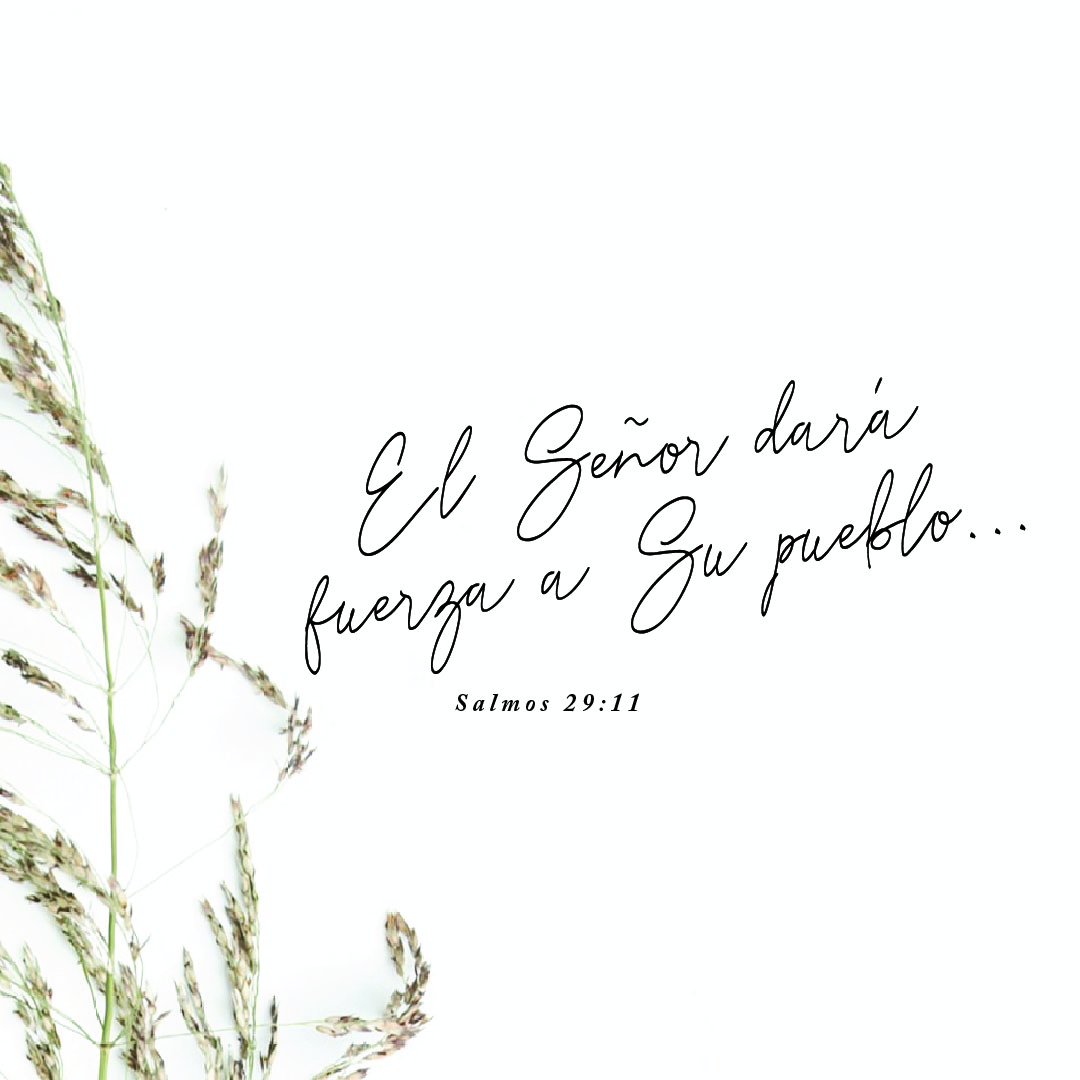 El Señor dará
fuerza a Su pueblo...
Salmos 29:11